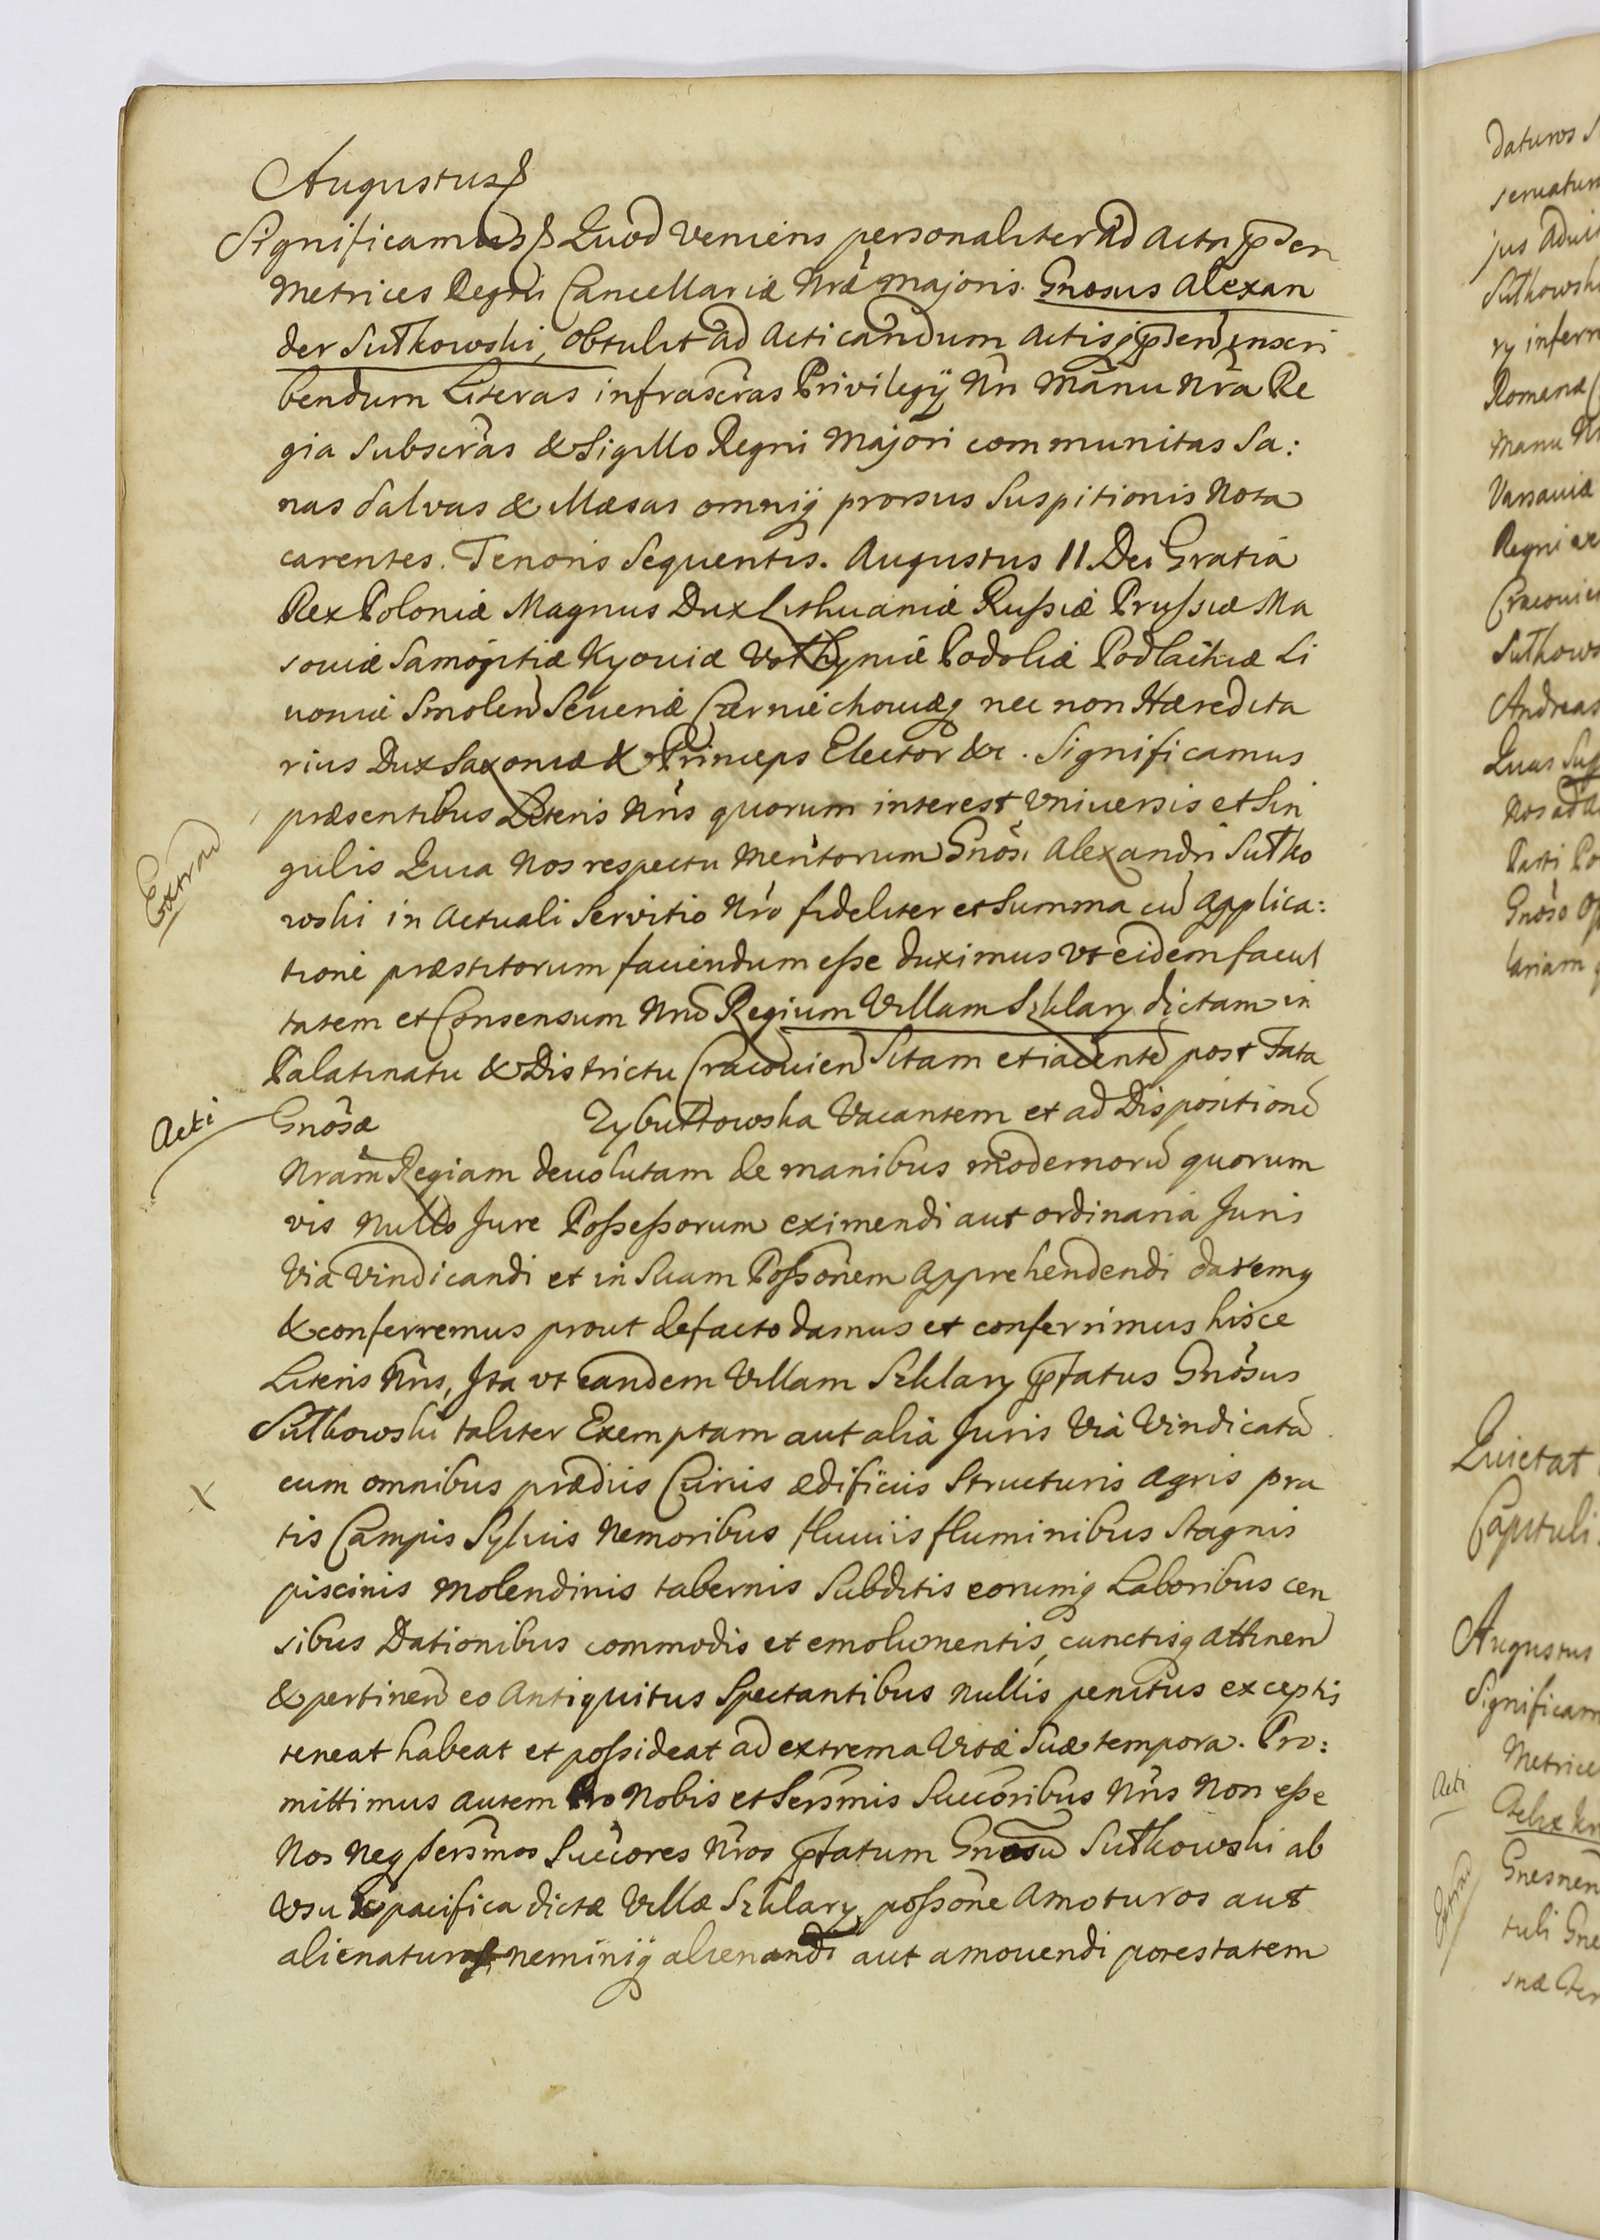 Augustus &
Significamus & Quod Veniens personaliter ad Acta p̄sen
Metrices Regni Cancellariæ Nrǣ Majoris. Gnosus Alexan
der Sułkowski, obtulit ad Acticandum Actisq̄ p̄sen inscri
bendum Literas infrascrãs Privilegij Nri Mãnu Nra Re
gia Subscrãs & Sigillo Regni Majori communitas Sa:
nas Salvas & Illæsas omniq̄ prorsus Suspitionis Nota
carentes. Tenoris Sequentis. Augustus II. Dei Gratia
Rex Poloniæ Magnus Dux Lithuaniæ Russiæ Prussiæ Ma
souiæ Samogitiæ Kyouiæ Vołhyniæ Podoliæ Podlachiæ Li
uoniæ Smolen Seueriæ Czerniechouiæq̄ nec non Hæredita
rius Dux Saxoniæ & Princeps Elector &c. Significamus
præsentibus Literis Nris quorum interest Vniuersis et Sin
gulis Quia Nos respectu Meritorum Gnosi Alexandri Sułko
wski in Actuali Servitio Nro fideliter et Summa cũ Applica:
tione præstitorum faciendum esse duximus Vt eidem facul
tatem et Consensum Nrũ Regium Villam Szklary dictam in
Palatinatu & Districtu Cracouien Sitam et iacentẽ post Fata
Gnosæ Zybułtowska Vacantem et ad Dispositionẽ
Nram Regiam deuolutam de manibus modernorũ quorum
vis Nullo Jure Possessorum eximendi aut ordinaria Juris
Via Vindicandi et in Suam Possonem Apprehendendi daremq̄
& conferremus prout de facto damus et conferrimus hisce
Literis Nris, Ita vt eandem Villam Szklary p̄fatus Gnosus
Sułkowski taliter Exemptam aut alia Juris Via Vindicatã
cum omnibus prædiis Curiis ædificiis Structuris Agris pra
tis Campis Syluis Nemoribus fluuiis fluminibus Stagnis
piscinis Molendinis tabernis Subditis eorumq̄ Laboribus cen
sibus Dationibus commodis et emolumentis, cunctisq̄ Attinen
& pertinen eo Antiquitus Spectantibus Nullis penitus exceptis
teneat habeat et possideat ad extrema Vitæ Suæ tempora. Pro:
mittimus autem Pro Nobis et Sersmis Succoribus Nris Non esse
Nos Neq̄ Sersmos Succores Nros p̄fatum Gnosũ Sułkowski ab
Vsu & pacifica dictæ Villæ Szklary possone Amoturos aut
alienaturos, neminiq̄ alienandi aut amouendi potestatem
Extrad
Acti
X
daturos
seruatum
jus
Sułkowski
Romanæ
Manu
Varsauiæ
Regni
Cracouien
Sułkows
Andreas
Quas
Nos
Parti
Gnoso
Quietat
Capituli
Augustus
Significam
Metrice
Acti
Extrad
Gnesnen
tuli Gne